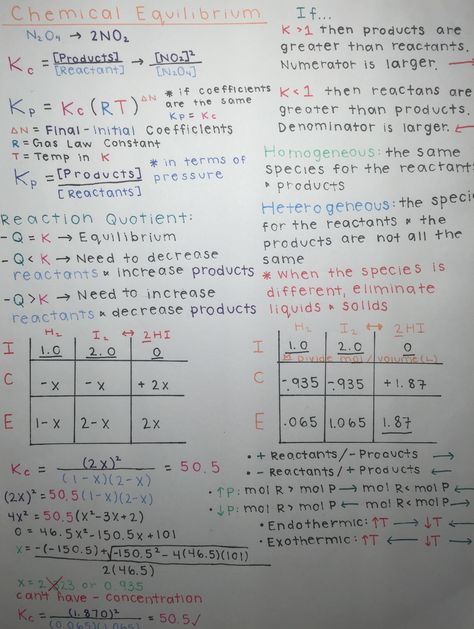 Chemical Equilibrium
N₂O₄ → 2NO₂
Kc = [Products] / [Reactant] → [NO₂]² / [N₂O₄]
Kp = Kc (RT)^ΔN * if coefficients
are the same
Kp = Kc
ΔN = Final-Initial Coefficients
R = Gas Law Constant
T = Temp in K
Kp = [Products] / [Reactants] * in terms of
pressure
Reaction Quotient:
-Q = K → Equilibrium
-Q < K → Need to decrease
reactants & increase products
-Q > K → Need to increase
reactants & decrease products
H₂ I₂ ↔ 2HI
I 1.0 2.0 0
C -x -x +2x
E 1-x 2-x 2x
Kc = (2x)² / (1-x)(2-x) = 50.5
(2x)² = 50.5(1-x)(2-x)
4x² = 50.5(x²-3x+2)
0 = 46.5x²-150.5x+101
x = -(-150.5)±√-150.5²-4(46.5)(101) / 2(46.5)
x = 2.323 or 0.935
can't have - concentration
Kc = (1.870)² / (0.065)(1.065) = 50.5✓
If...
K > 1 then products are
greater than reactants.
Numerator is larger. →
K < 1 then reactans are
greater than products.
Denominator is larger. ←
Homogeneous: the same
species for the reactant
& products
Heterogeneous: the speci
for the reactants & the
products are not all the
same
* When the species is
different, eliminate
liquids & solids
H₂ I₂ ↔ 2HI
I 1.0 2.0 0
* Divide mol/volume(L)
C -.935 -.935 +1.87
E .065 1.065 1.87
• + Reactants/- Products →
• - Reactants/+ Products ←
• ↑P: mol R > mol P → mol R < mol P ←
• ↓P: mol R > mol P ← mol R < mol P →
• Endothermic: ↑T → ↓T ←
• Exothermic: ↑T ← ↓T →